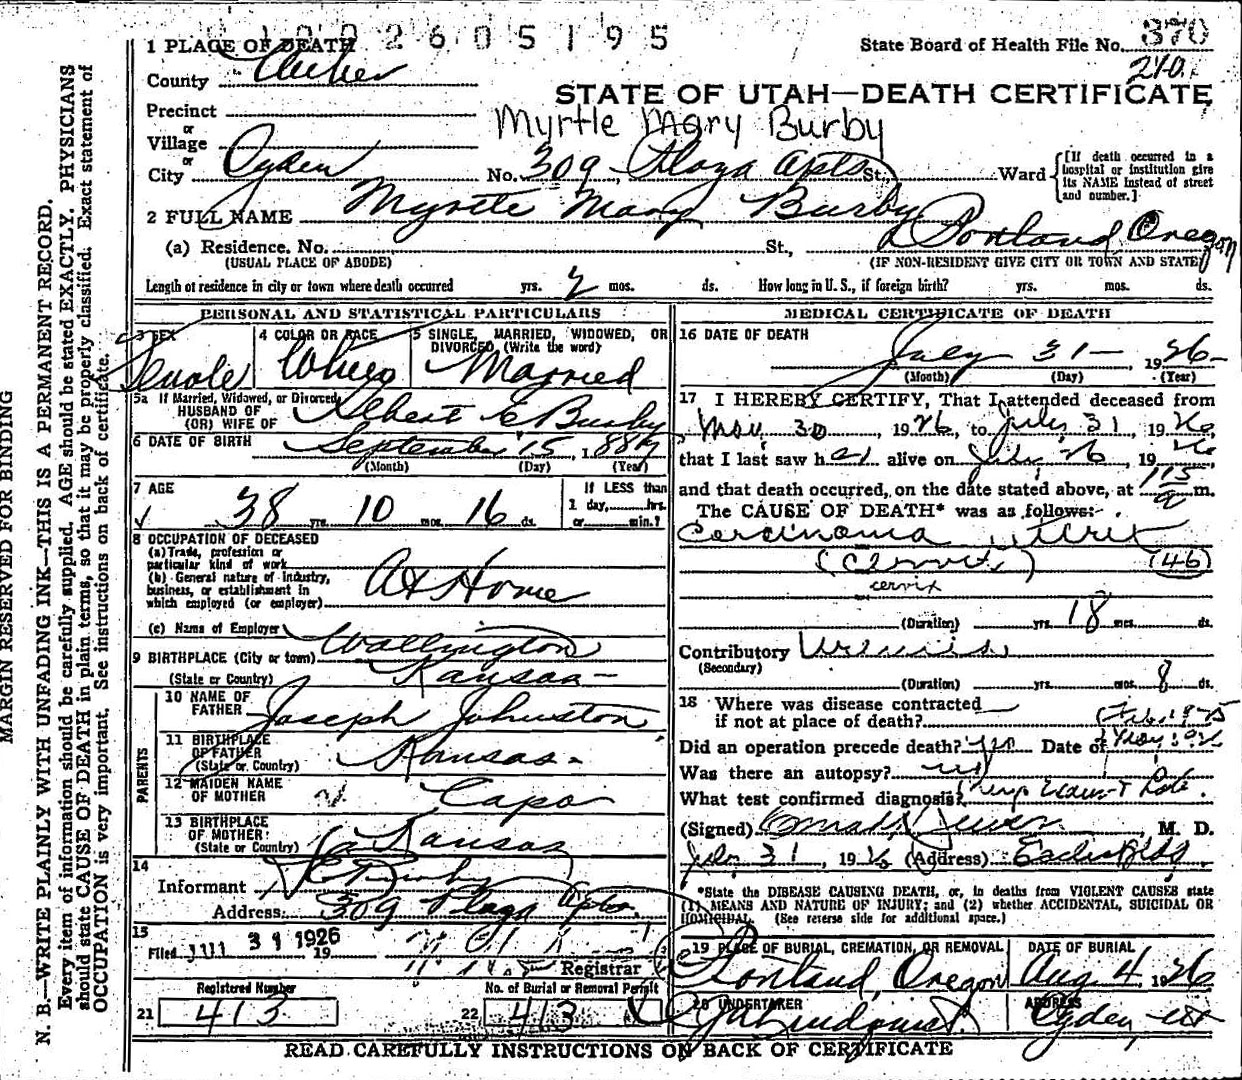 1002605195
1 PLACE OF DEATH
State Board of Health File No. 370
210
County Weber
STATE OF UTAH—DEATH CERTIFICATE
Precinct
or
Myrtle Mary Burby
Village
or
City Ogden No. 309 Plaza Apts St. Ward
[If death occurred in a hospital or institution give its NAME instead of street and number.]
2 FULL NAME Myrtle Mary Burby
(a) Residence. No. St., Portland Oregon
(USUAL PLACE OF ABODE) (IF NON-RESIDENT GIVE CITY OR TOWN AND STATE)
Length of residence in city or town where death occurred yrs. 2 mos. ds. How long in U. S., if foreign birth? yrs. mos. ds.
PERSONAL AND STATISTICAL PARTICULARS
3 SEX
Female
4 COLOR OR RACE
White
5 SINGLE, MARRIED, WIDOWED, OR
DIVORCED (Write the word)
Married
5a If Married, Widowed, or Divorced
HUSBAND OF
(OR) WIFE OF Albert E Burby
6 DATE OF BIRTH September 15, 1887
(Month) (Day) (Year)
7 AGE
38 yrs. 10 mos. 16 ds.
If LESS than
1 day, hrs.
or min.?
8 OCCUPATION OF DECEASED
(a) Trade, profession or
particular kind of work
(b) General nature of industry,
business, or establishment in
which employed (or employer)
At Home
(c) Name of Employer
9 BIRTHPLACE (City or town) Wallington
(State or Country) Kansas
PARENTS
10 NAME OF
FATHER Joseph Johnston
11 BIRTHPLACE
OF FATHER
(State or Country) Kansas
12 MAIDEN NAME
OF MOTHER Capo
13 BIRTHPLACE
OF MOTHER
(State or Country) Kansas
14
Informant
Address 309 Plaza Apts.
15
Filed JUL 31 1926 19
Registrar
Registered Number
21 413
No. of Burial or Removal Permit
22 413
MEDICAL CERTIFICATE OF DEATH
16 DATE OF DEATH
July 31 1926
(Month) (Day) (Year)
17 I HEREBY CERTIFY, That I attended deceased from
May 30, 1926, to July 31, 1926,
that I last saw her alive on July 26, 1926,
and that death occurred, on the date stated above, at 115 a m.
The CAUSE OF DEATH* was as follows:
Carcinoma uteri
(Cervix) (46)
cervix
(Duration) yrs. 18 mos. ds.
Contributory Uremia
(Secondary)
(Duration) yrs. mos. 8 ds.
18 Where was disease contracted
if not at place of death?
Did an operation precede death? yes Date of
Was there an autopsy? no
What test confirmed diagnosis?
(Signed) M. D.
July 31, 1926 (Address) Eccles Bldg
*State the DISEASE CAUSING DEATH, or, in deaths from VIOLENT CAUSES state
(1) MEANS AND NATURE OF INJURY; and (2) whether ACCIDENTAL, SUICIDAL OR
HOMICIDAL. (See reverse side for additional space.)
19 PLACE OF BURIAL, CREMATION, OR REMOVAL
Portland, Oregon
DATE OF BURIAL
Aug 4, 1926
20 UNDERTAKER
ADDRESS
Ogden, Ut
READ CAREFULLY INSTRUCTIONS ON BACK OF CERTIFICATE
MARGIN RESERVED FOR BINDING
N. B.—WRITE PLAINLY WITH UNFADING INK—THIS IS A PERMANENT RECORD.
Every item of information should be carefully supplied. AGE should be stated EXACTLY. PHYSICIANS
should state CAUSE OF DEATH in plain terms, so that it may be properly classified. Exact statement of
OCCUPATION is very important. See instructions on back of certificate.